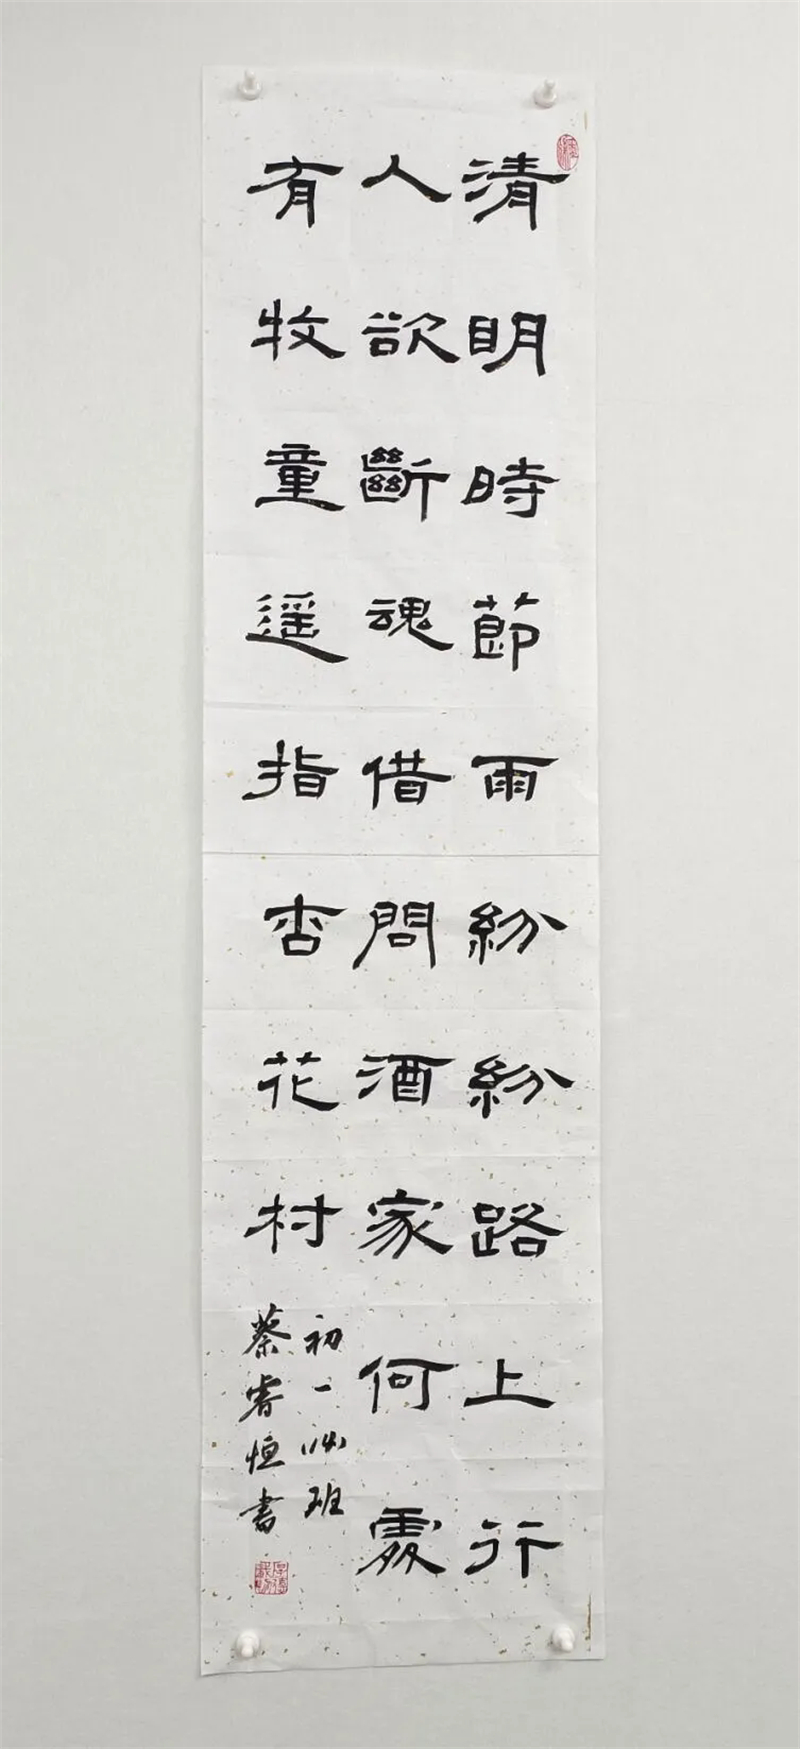 清明時節雨紛紛路上行
人欲斷魂借問酒家何處
有牧童遙指杏花村
初一班
蔡睿恒書